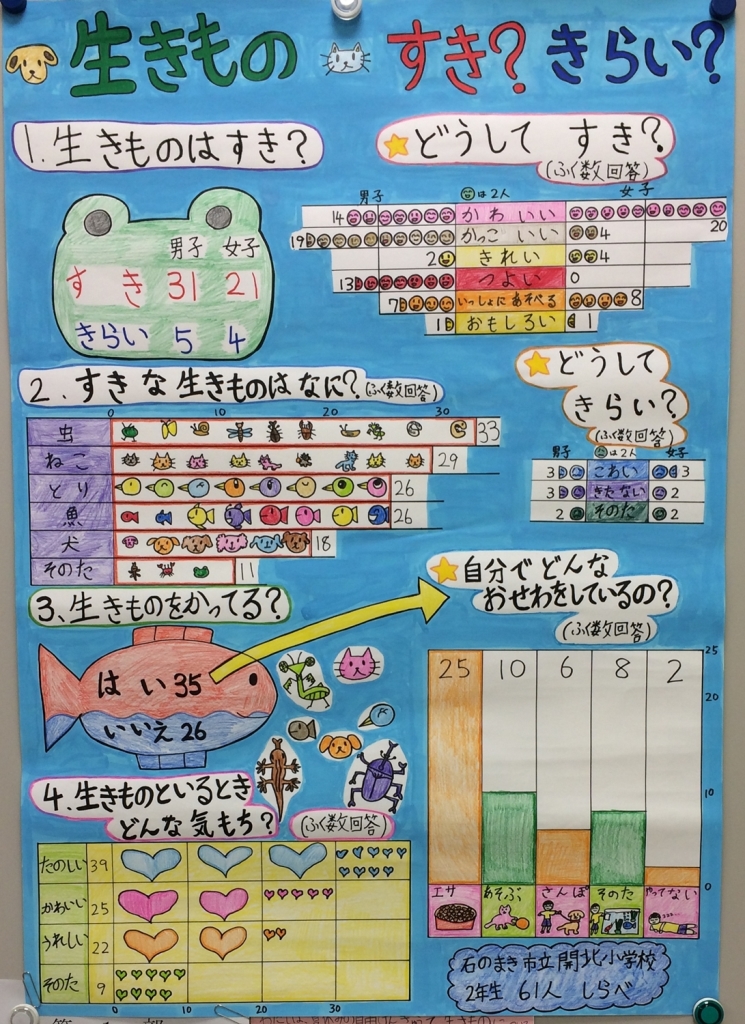 生きもの すき？ きらい？
1.生きものはすき？
男子 女子
すき 31 21
きらい 5 4
☆どうして すき？
(ふく数回答)
男子 は2人 女子
14 かわいい 20
19 かっこいい 4
2 きれい 4
13 つよい 0
7 いっしょにあそべる 8
1 おもしろい 1
2.すきな生きものはなに？(ふく数回答)
0 10 20 30
虫 33
ねこ 29
とり 26
魚 26
犬 18
そのた 11
☆どうして
きらい？
(ふく数回答)
男子 は2人 女子
3 こわい 3
3 きたない 2
2 そのた 2
3、生きものをかってる？
はい 35
いいえ 26
☆自分でどんな
おせわをしているの？
(ふく数回答)
25 10 6 8 2
25
20
10
0
エサ あそぶ さんぽ そのた やってない
4.生きものといるとき
どんな気もち？ (ふく数回答)
たのしい 39
かわいい 25
うれしい 22
そのた 9
0 10 20 30
石のまき市立開北小学校
2年生 61人 しらべ